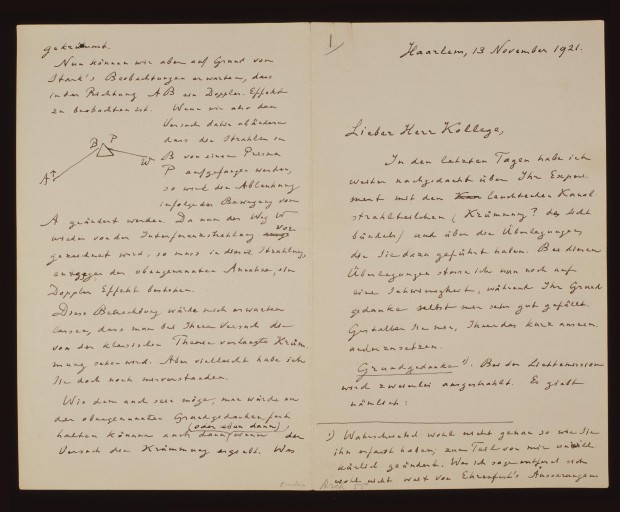 1
Haarlem, 13 November 1921.
Lieber Herr Kollege,
In den letzten Tagen habe ich
weiter nachgedacht über Ihr Experi-
ment mit den leuchtenden Kanal-
strahlteilchen (Krümmung? der Licht
bündels) und über die Überlegungen,
die Sie dazu geführt haben. Bei diesen
Überlegungen stosse ich nun noch auf
eine Schwierigkeit, während Ihr Grund
gedanke selbst mir sehr gut gefällt.
Gestatten Sie mir, Ihnen das kurz ausein-
anderzusetzen.
Grundgedanke 1). Bei der Lichtemission
wird zweierlei ausgestrahlt. Es giebt
nämlich:
1) Wahrscheinlich wohl nicht genau so wie Sie
ihn erfasst haben; zum Teil von mir will
kürlich geändert. Was ich sage entfernt sich
wohl nicht weit von Ehrenfest's Äusserungen
gekrümmt.
Nun können wir aber auf Grund von
Stark's Beobachtungen erwarten, dass
in der Richtung AB ein Doppler-Effekt
zu beobachten ist. Wenn wir also den
Versuch dahin abändern
dass die Strahlen in
B von einem Prisma
P aufgefangen werden,
so wird die Ablenkung
infolge der Bewegung von
B P
A W
A geändert werden. Da nun der Weg W
wieder von der Interferenzstrahlung vor
gezeichnet wird, so muss in dieser Strahlung,
entgegen der obengenannten Annahme, ein
Doppler Effekt bestehen.
Diese Betrachtung würde mich erwarten
lassen, dass man bei Ihrem Versuch die
von der klassischen Theorie verlangte Krüm
mung sehen wird. Aber vielleicht habe ich
Sie doch noch missverstanden.
Wie dem auch sein möge, man würde an
den obengenannten Grundgedanken fest
(oder eben dann),
halten können auch dann wenn der
Versuch die Krümmung ergibt. Was